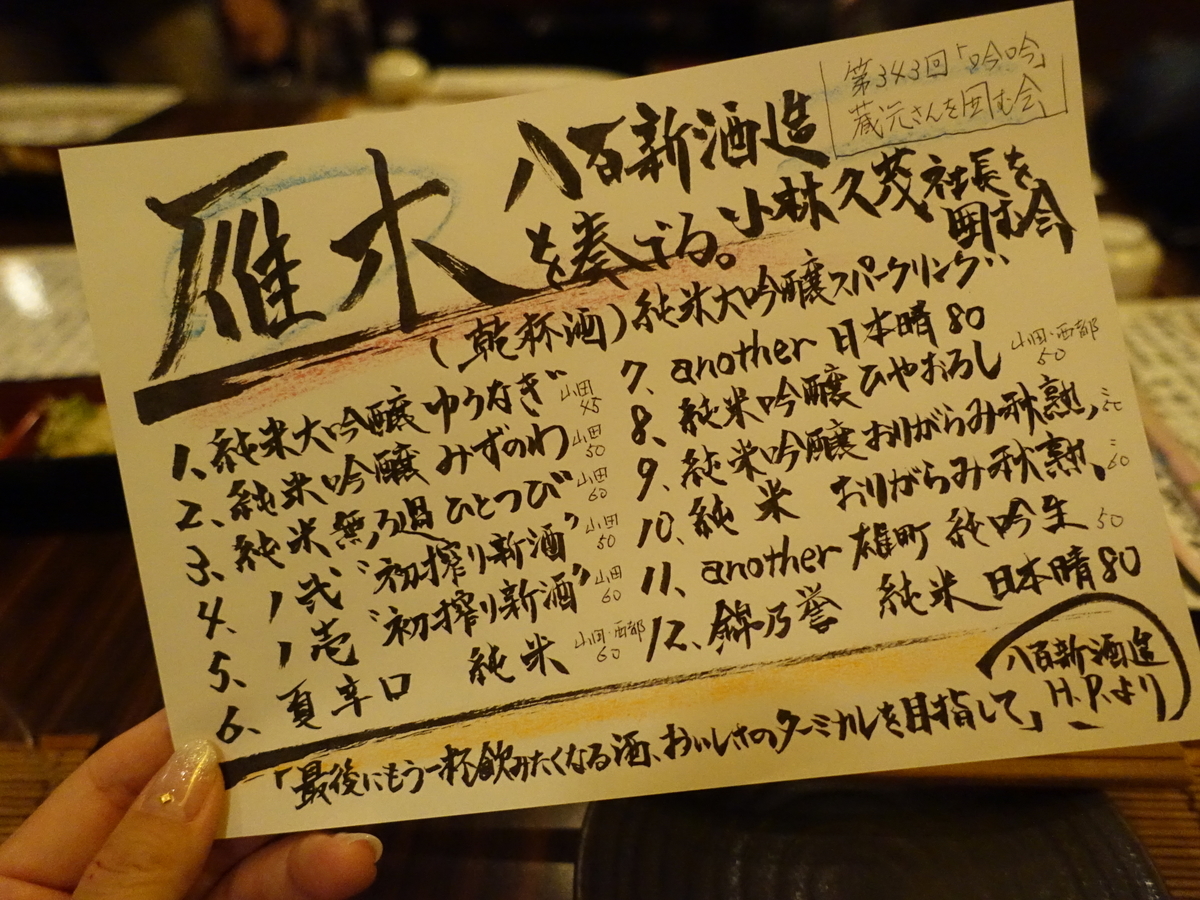 第343回「吟吟」
蔵元さんを囲む会
雁木
八百新酒造
を奏でる。小林久茂社長を
囲む会
(乾杯酒)純米大吟醸スパークリング
1、純米大吟醸 ゆうなぎ 山田45
2、純米吟醸 みずのわ 山田50
3、純米無ろ過 ひとつび 山田60
4、ノ弐 "初搾り新酒" 山田50
5、ノ壱 "初搾り新酒" 山田60
6、夏辛口 純米 山田・西都60
7、another 日本晴80
8、純米吟醸ひやおろし 山田・西都50
9、純米吟醸おりがらみ秋熟、
10、純米 おりがらみ秋熟、60
11、another 雄町 純吟生 50
12、錦乃誉 純米 日本晴80
「最後にもう一杯飲みたくなる酒、おいしさのターミナルを目指して」
八百新酒造
H.P.より